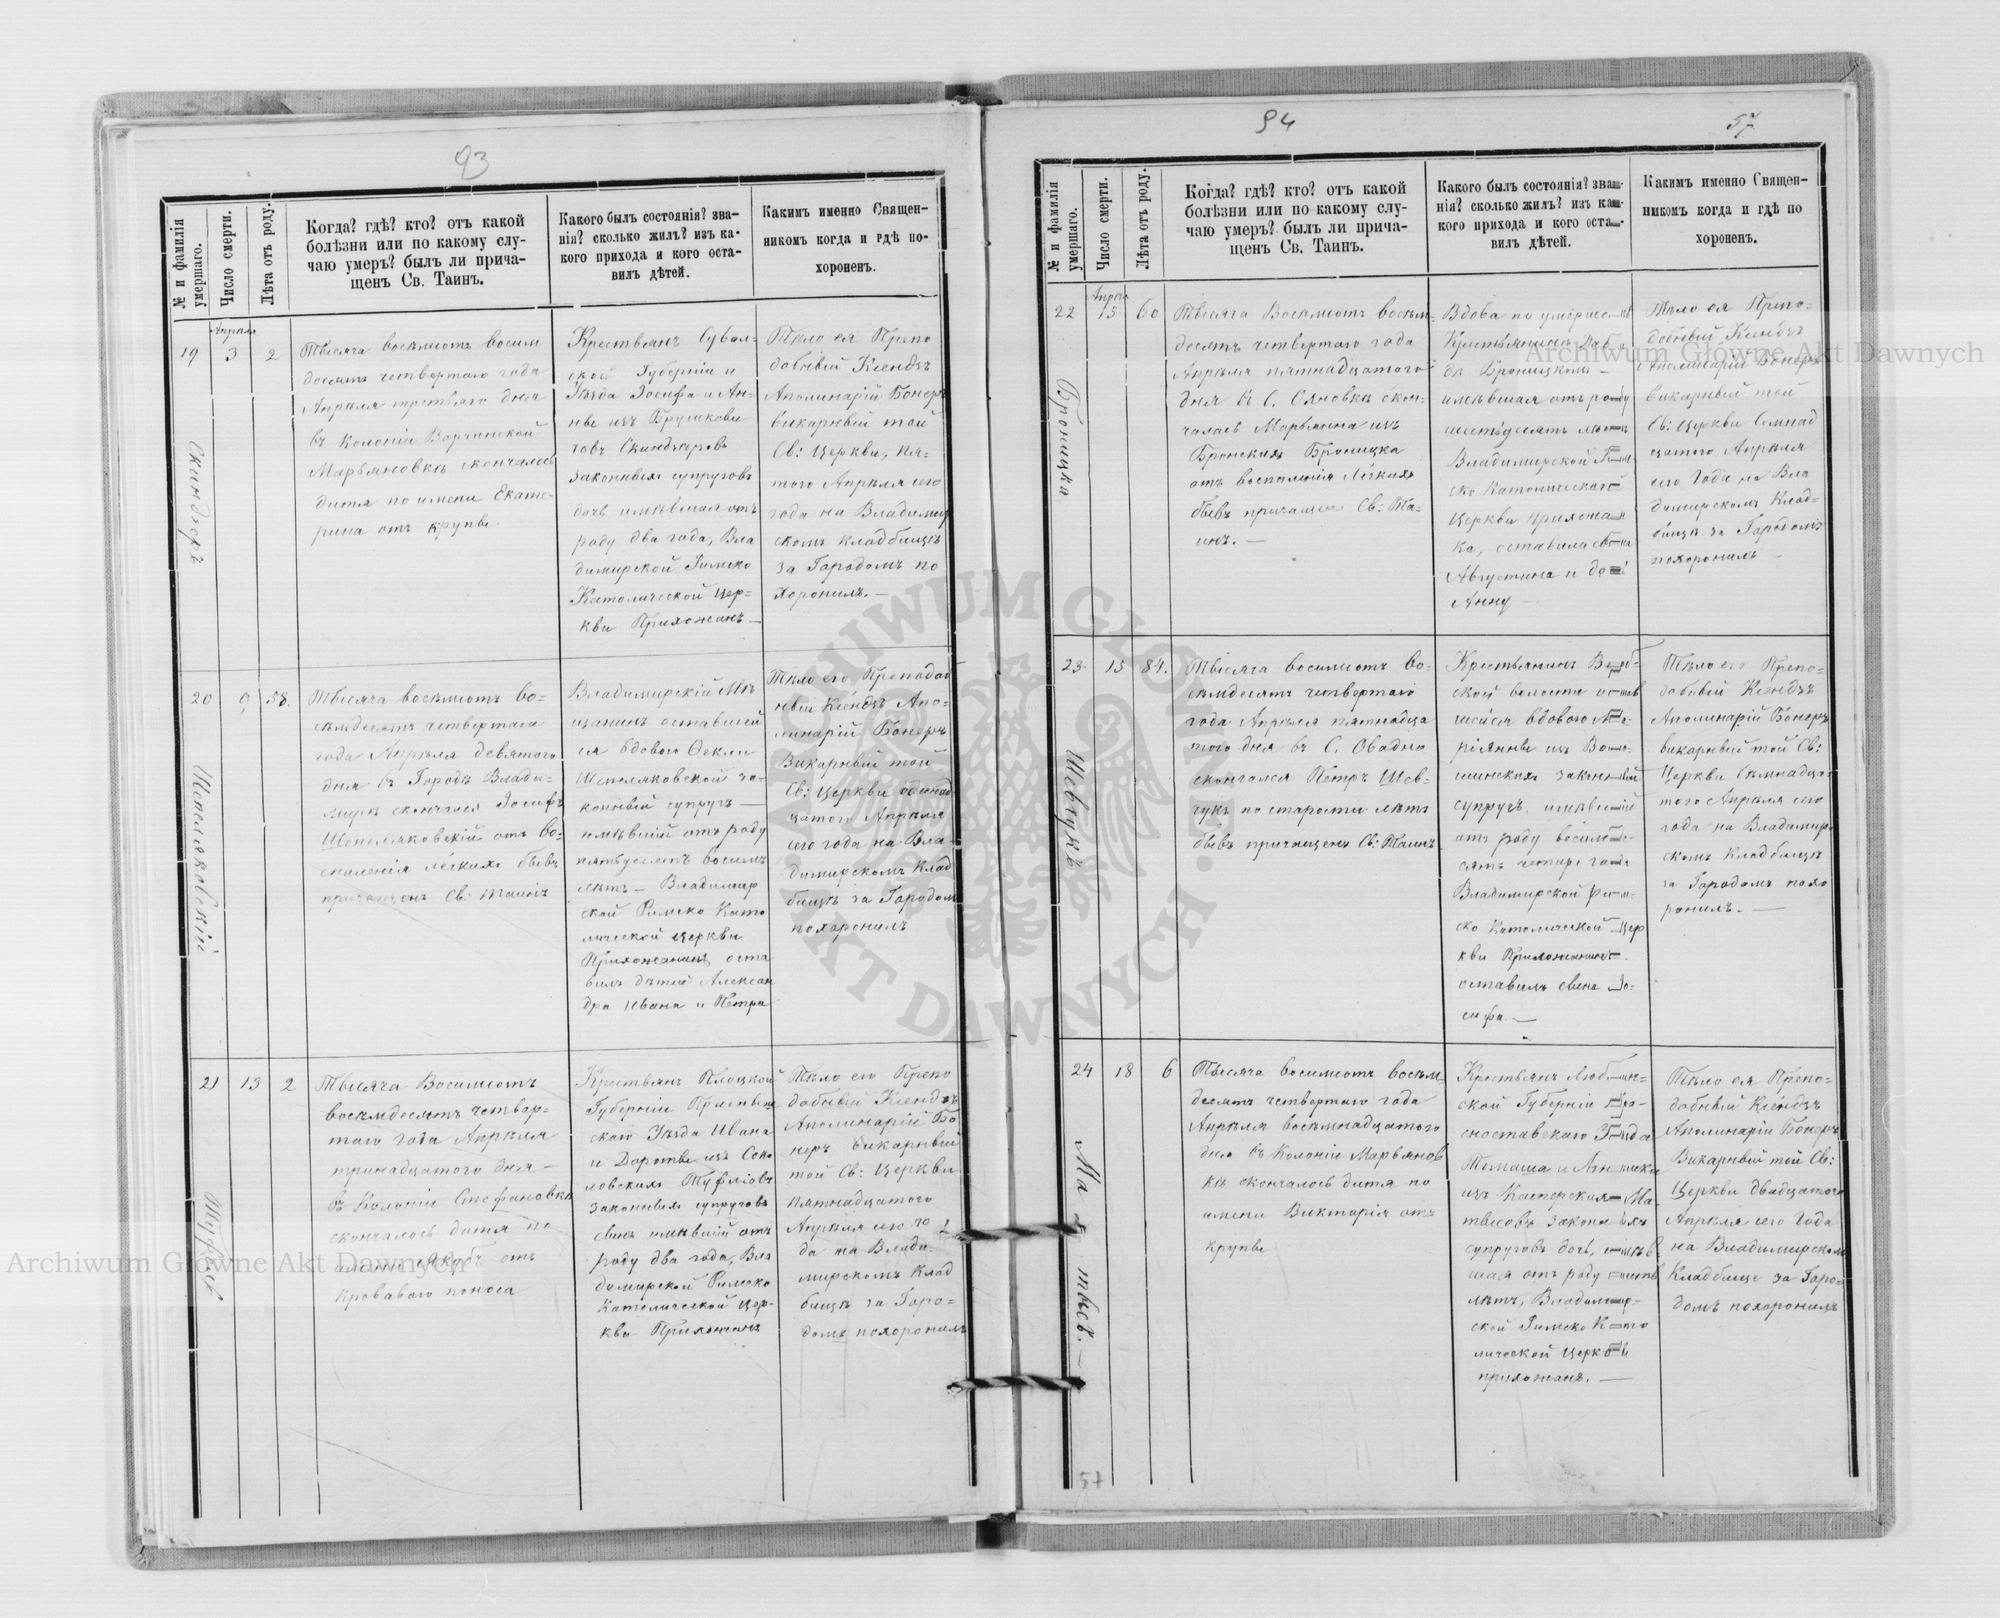 93
№ и фамилія умершаго.
Число смерти.
Лѣта отъ роду.
Когда? гдѣ? кто? отъ какой
болѣзни или по какому слу-
чаю умеръ? былъ ли прича-
щенъ Св. Таинъ.
Какого былъ состоянія? зва-
нія? сколько жилъ? изъ ка-
кого прихода и кого оста-
вилъ дѣтей.
Какимъ именно Священ-
никомъ когда и гдѣ по-
хороненъ.
19
Апрѣля
3
2
Тысяча восемьсотъ восим
десятъ четвертаго года
Апрѣля третьяго дня
въ колоніи
Марьяновкѣ скончалось
дитя по имени Екате-
рина отъ крупы
Крестьянъ Сувал-
ской Губерніи и
Уѣзда Іосифа и Ан-
ны изъ
законныхъ супруговъ
дочь имѣвшая отъ
роду два года, Вла
димирской Римско
Католической Цер-
кви Прихожанъ —
Тѣло ея Препо
добный Ксендзъ
Аполинарій Бонеръ
викарный той
Св: Церкви, пя-
того Апрѣля сего
года на Владимир
скомъ кладбищѣ
за Городомъ по
хоронилъ. —
20
9
58.
Шепеляковскій
Тысяча восемьсотъ во-
съмдесятъ четвертаго
года Апрѣля девятого
дня въ Городѣ Влади-
мирѣ скончался Іосифъ
Шепеляковскій отъ во-
спаленія лёгкихъ бывъ
причащенъ Св: Таинъ
Владимирскій Мѣ
щанинъ оставшей
ся вдовою Ѳекли
Шепеляковской за-
конный супругъ —
имѣвшій отъ роду
пятьдесятъ восимъ
лѣтъ — Владимир
ской Римско Като
лической Церкви
Прихожанинъ оста
вилъ дѣтей Алексан
дра Ивана и Петра
Тѣло его Преподоб
ный Ксендзъ Апо-
линарій Бонеръ
Викарный той
Св: Церкви одинад
цатого Апрѣля
сего года на Вла-
димирскомъ Клад
бищѣ за Городом
похоронилъ
21
13
2
Тысяча Восимсотъ
восемдесятъ четвер-
таго года Апрѣля
тринадцатого дня —
въ Колоніи Стефановкѣ
скончалось дитя по
имени Якубъ отъ
кроваваго поноса
Крестьянъ Плоцкой
Губерніи
скаго Уѣзда Ивана
и Доротеи изъ Соко
ловскихъ
законныхъ супруговъ
сынъ имѣвшій отъ
роду два года, Вла
димирской Римско
Католической Цер-
кви Прихожанъ
Тѣло его Препо
добный Ксендзъ
Аполинарій Бо
неръ Викарный
той Св: Церкви
пятнадцатого
Апрѣля сего го
да на Влади-
мирскомъ Клад
бищѣ за Горо-
домъ похоронилъ
94
57
№ и фамилія умершаго.
Число смерти.
Лѣта отъ роду.
Когда? гдѣ? кто? отъ какой
болѣзни или по какому слу-
чаю умеръ? былъ ли прича-
щенъ Св. Таинъ.
Какого былъ состоянія? зва-
нія? сколько жилъ? изъ ка-
кого прихода и кого оста-
вилъ дѣтей.
Какимъ именно Священ-
никомъ когда и гдѣ по
хороненъ.
22
Апрѣля
15
60
Броницка
Тысяча Восемьсотъ восем-
десятъ четвертаго года
Апрѣля пятнадцатого
дня въ С. Сяновкѣ скон-
чалась Марьянна изъ
Бронскихъ Броницка
отъ воспаленія лёгкихъ
бывъ причащена Св: Та-
инъ. —
Вдова по умершемъ
Крестьянинѣ
Броницкомъ —
имѣвшая отъ роду
шестьдесятъ лѣтъ
Владимирской Рим
ско Католической
Церкви прихожан
ка, оставила сына
Августина и дочь
Анну —
Тѣло ея Препо-
добный Ксендзъ
Аполинарій Бонеръ
викарный той
Св: Церкви Семнад
цатого Апрѣля
сего Года на Вла
димирскомъ Клад-
бищѣ за Городомъ
похоронилъ —
23
15
84.
Шевчукъ
Тысяча восимсотъ во-
семдесятъ четвертаго
года Апрѣля пятнадца
того дня въ С. Овадно
скончался Петръ Шев-
чукъ по старости лѣтъ
бывъ причащенъ Св: Таинъ
Крестьянинъ
ской волости остав
шейся вдовою Ма-
ріянны изъ
шинскихъ законный
супругъ, имѣвшій
отъ роду восимде-
сятъ четыре года
Владимирской Рим-
ско Католической Цер
кви Прихожанинъ.
оставилъ сына Іо-
сифа. —
Тѣло его Препо-
добный Ксендзъ
Аполинарій Бонеръ
викарный той Св:
Церкви семнадца-
того Апрѣля сего
года на Владимир-
скомъ Кладбищѣ
за Городомъ похо
ронилъ. —
24
18
6
Тысяча восимсотъ восем
десятъ четвертаго года
Апрѣля восемнадцатого
дня въ Колоніи Марьянов
кѣ скончалось дитя по
имени Викторія отъ
крупы
Крестьянъ Люблин-
ской Губерніи Кра-
сноставскаго Уѣзда
Томаша и Агнешки
изъ Касперскихъ Ма-
тысовъ законныхъ
супруговъ дочь, имѣв
шая отъ роду шесть
лѣтъ, Владимир-
ской Римско Като
лической Церкви
прихожанъ. —
Тѣло ея Препо-
добный Ксендзъ
Аполинарій Бонеръ
Викарный той Св:
Церкви двадцатого
Апрѣля сего Года
на Владимирскомъ
Кладбище за Горо-
домъ похоронилъ
57
ARCHIWUM GŁÓWNE AKT DAWNYCH
Archiwum Główne Akt Dawnych
Archiwum Główne Akt Dawnych